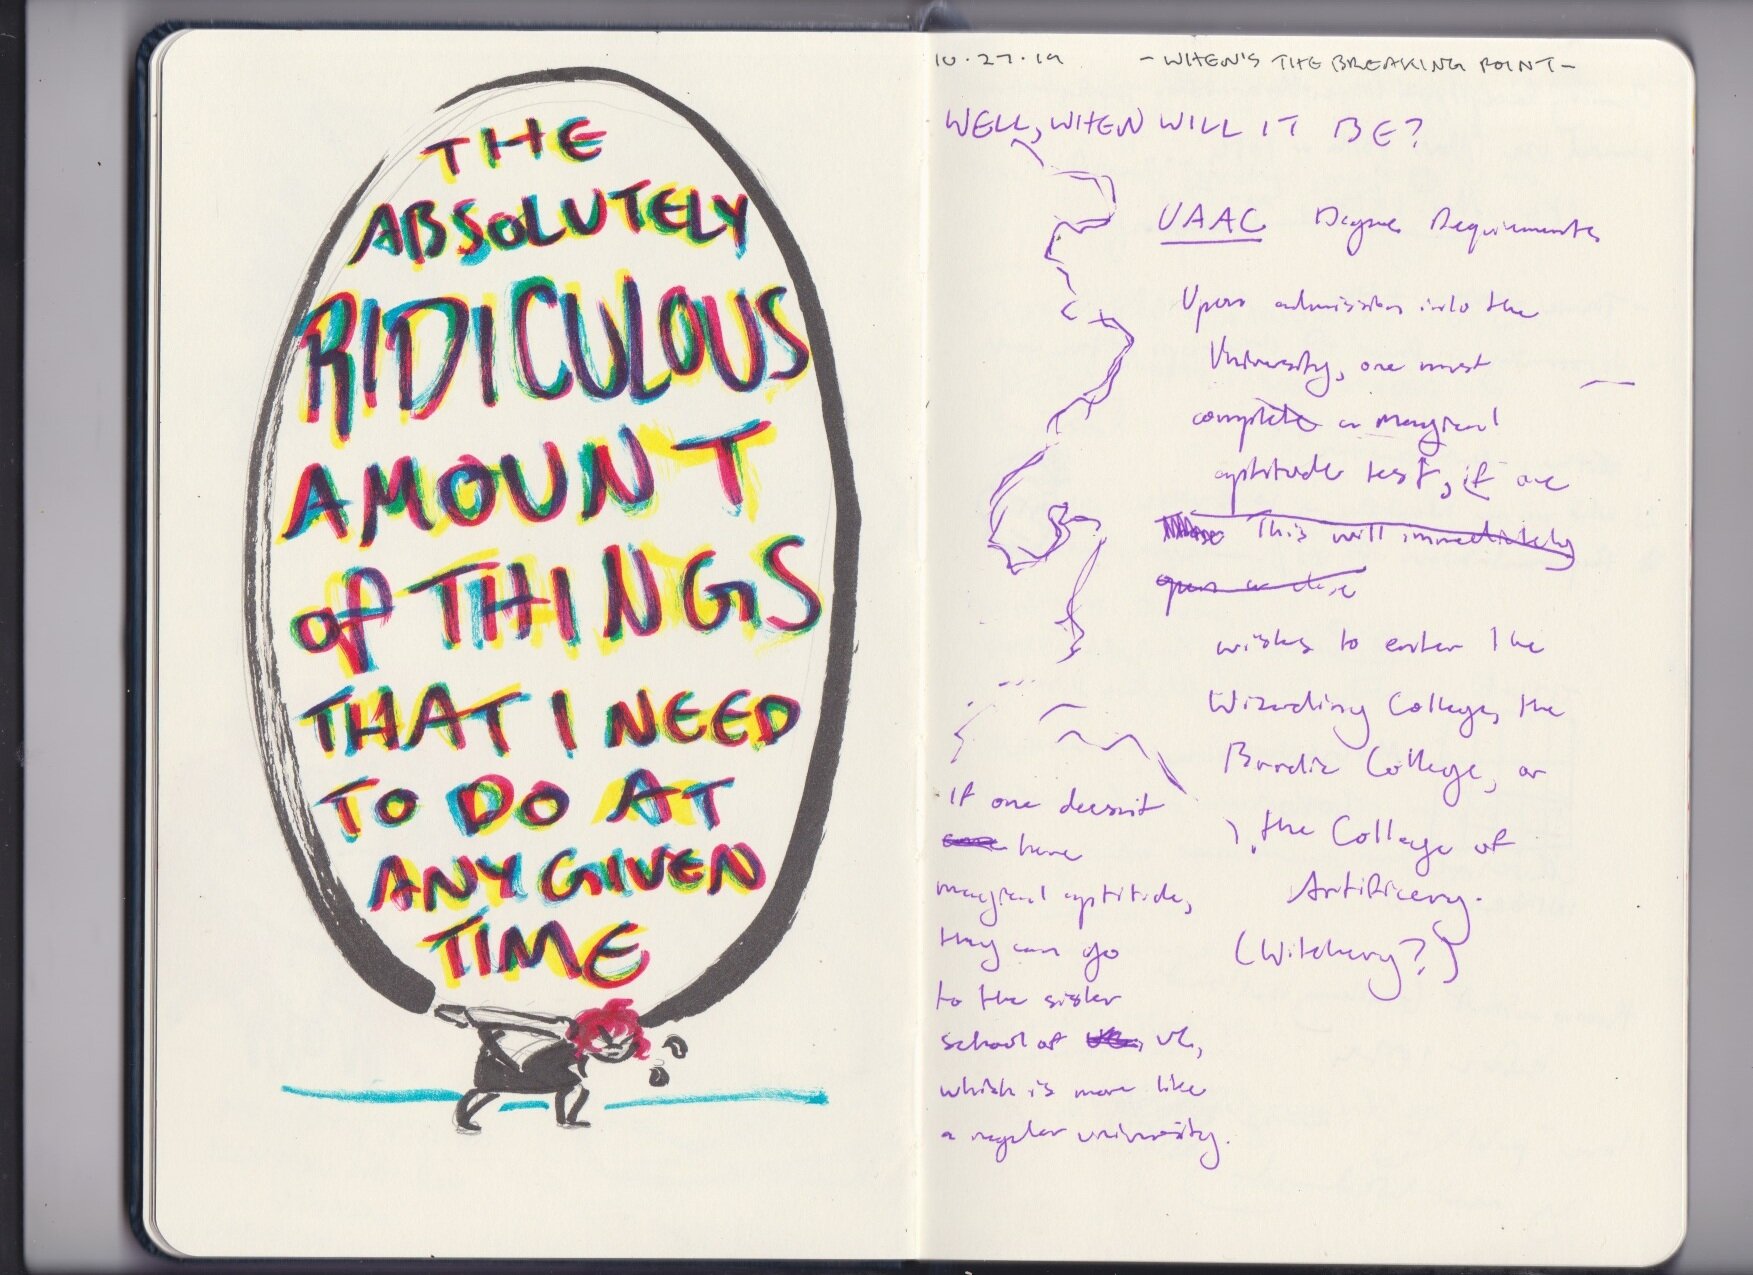 THE
ABSOLUTELY
RIDICULOUS
AMOUNT
of THINGS
THAT I NEED
TO DO AT
ANY GIVEN
TIME
10.27.19 - WHEN'S THE BREAKING POINT -
WELL, WHEN WILL IT BE?
UAAC Degree Requirements
Upon admission into the
University, one must
complete a magical
aptitude test, if one
This will immediately
open or close
wishes to enter the
Wizarding College, the
Bardic College, or
the College of
Artificery.
(Witchery?)
If one doesn't
have
magical aptitude,
they can go
to the sister
school of
which is more like
a regular university.